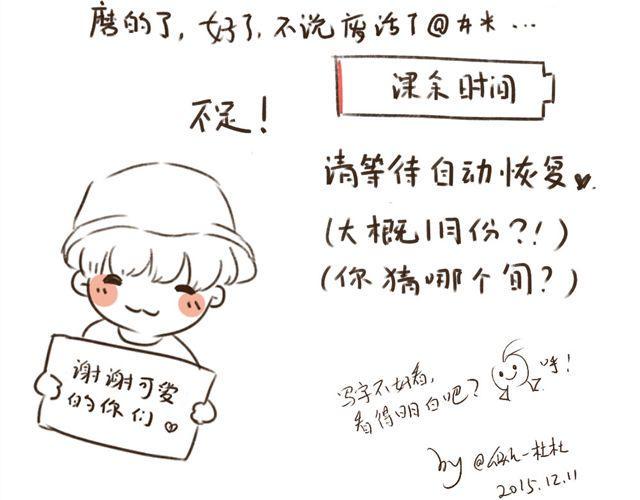 磨的了，好了，不说废话了@#*...
课余时间
不足！
请等待自动恢复
(大概1月份？！)
(你猜哪个旬？)
谢谢可爱
的你们
写字不好看，
看得明白吧？
by @ 杜杜
2015.12.11